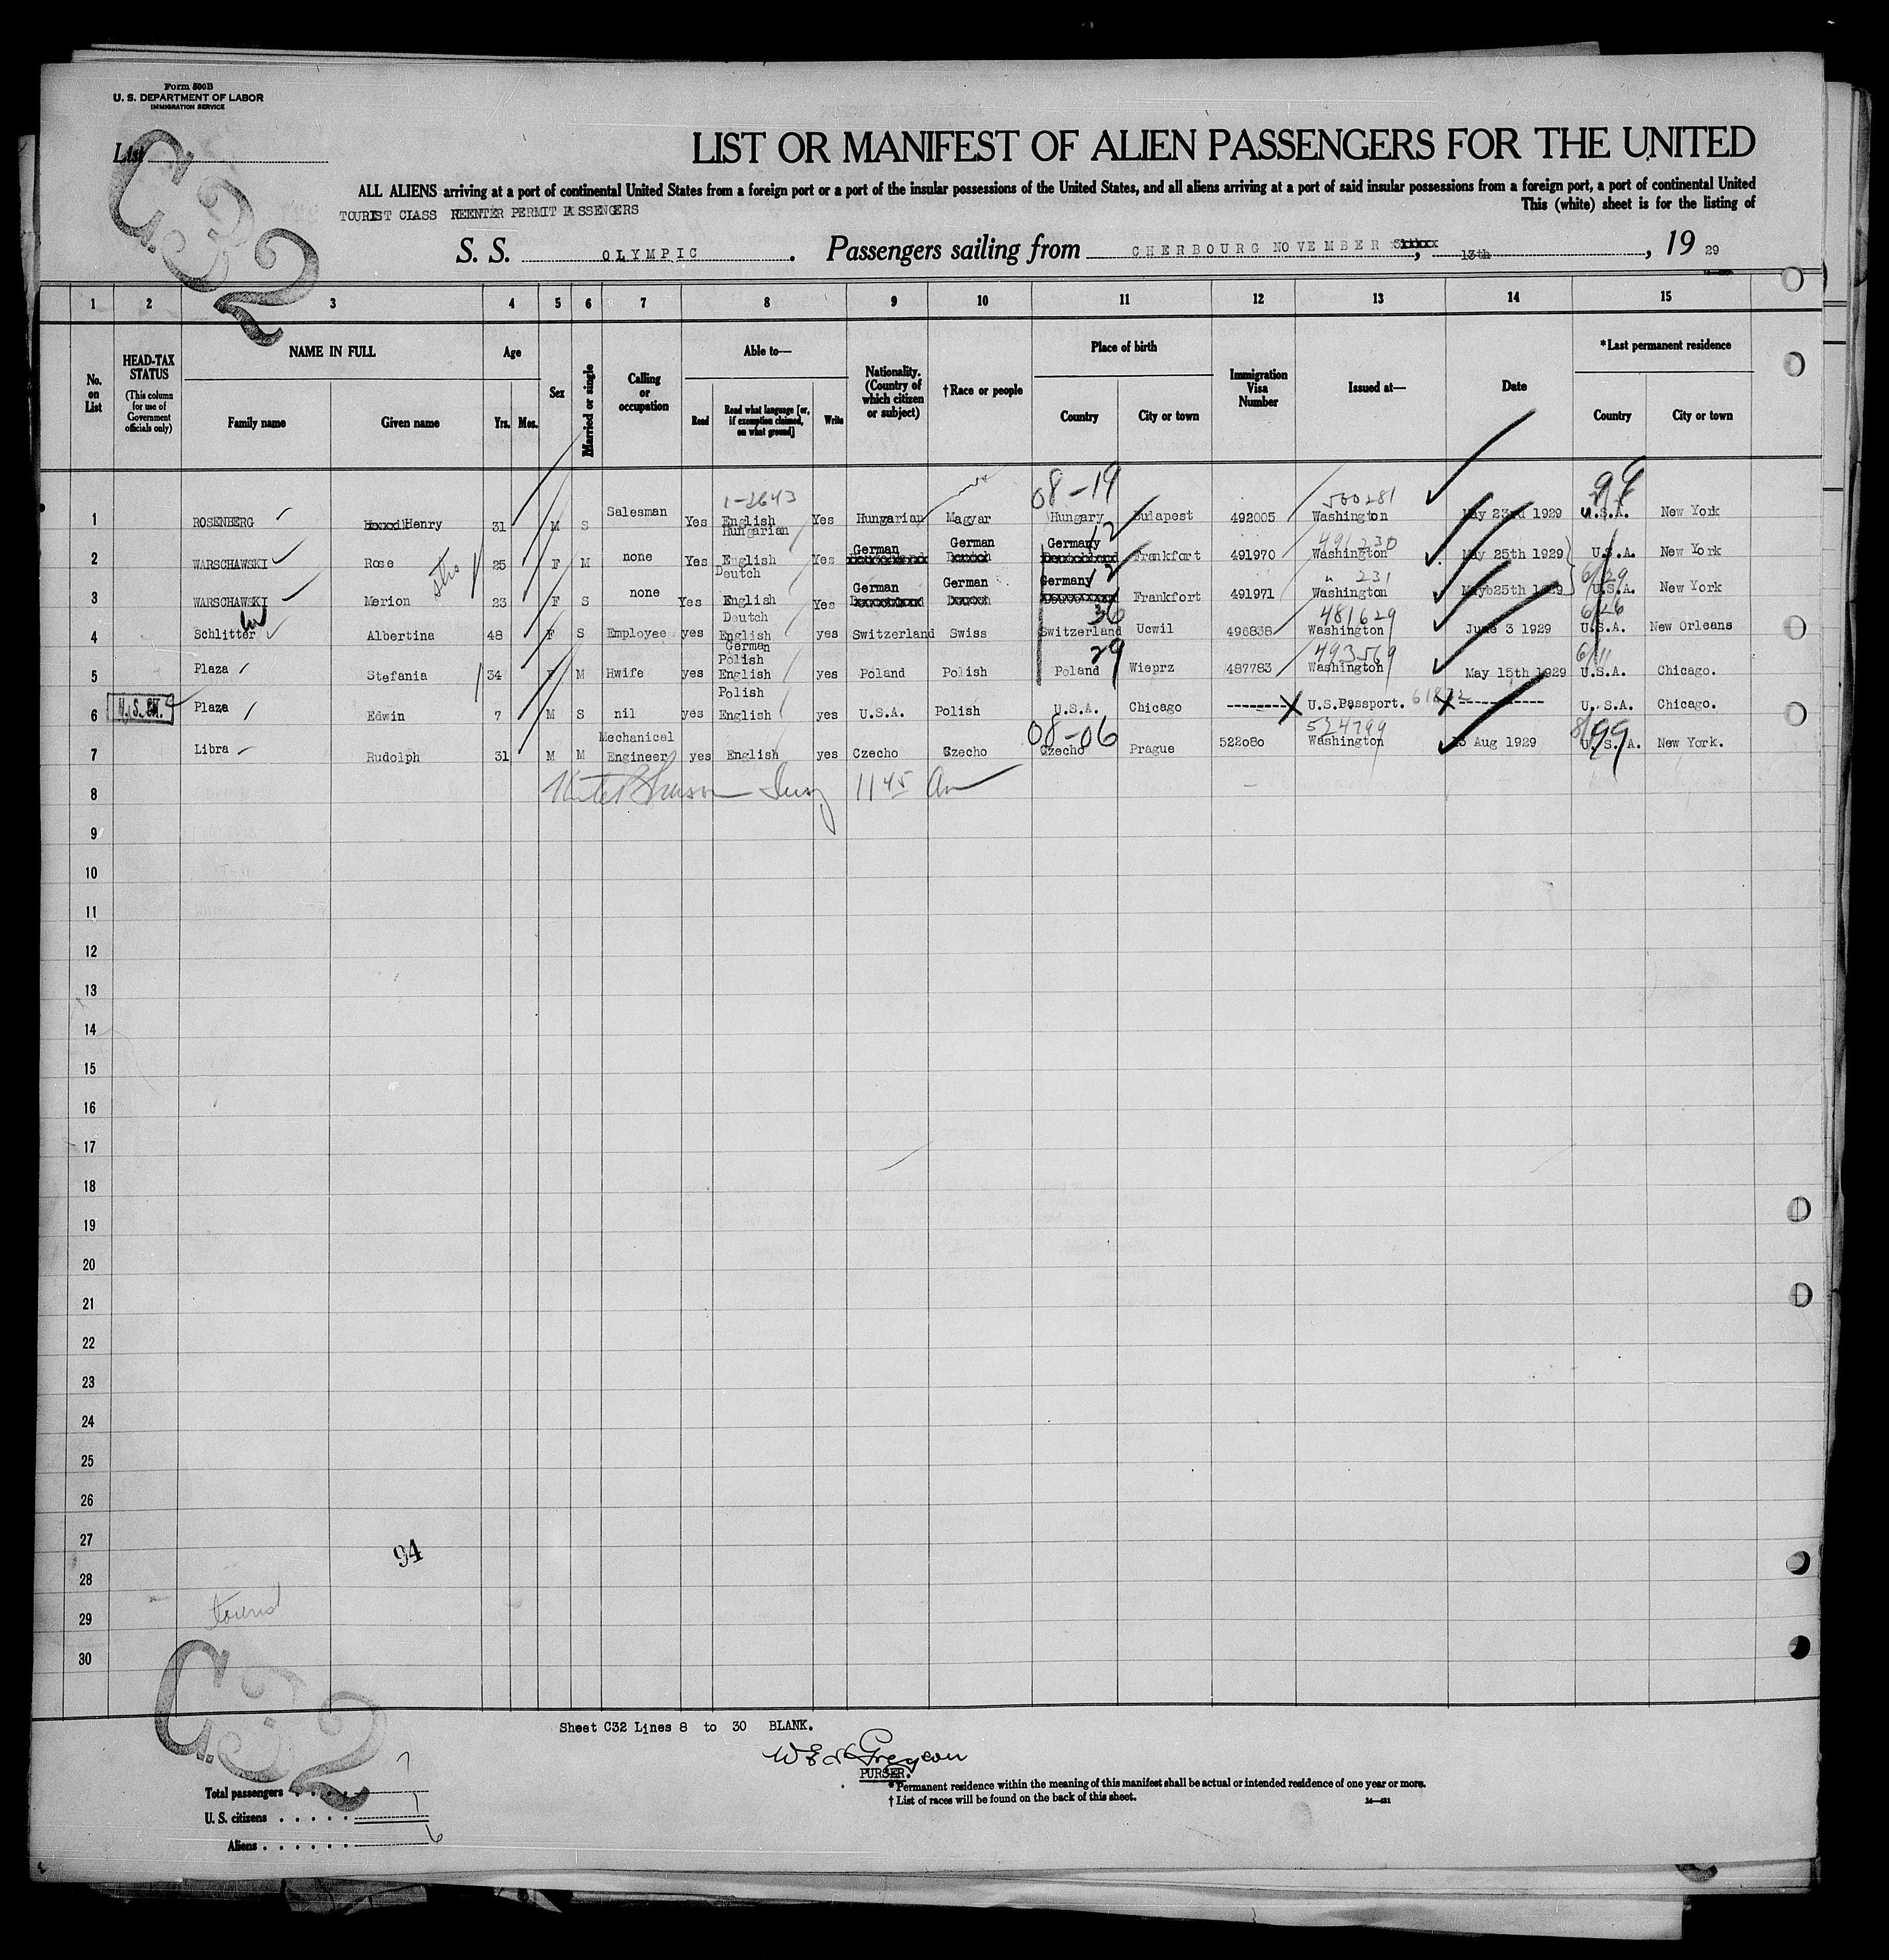 Form 500B
U. S. DEPARTMENT OF LABOR
IMMIGRATION SERVICE
List
C.32
LIST OR MANIFEST OF ALIEN PASSENGERS FOR THE UNITED
ALL ALIENS arriving at a port of continental United States from a foreign port or a port of the insular possessions of the United States, and all aliens arriving at a port of said insular possessions from a foreign port, a port of continental United
This (white) sheet is for the listing of
TOURIST CLASS REENTER PERMIT PASSENGERS
S. S. OLYMPIC. Passengers sailing from CHERBOURG NOVEMBER, 13th, 19 29
1 2 3 4 5 6 7 8 9 10 11 12 13 14 15
No. on List
HEAD-TAX STATUS
(This column for use of Government officials only)
NAME IN FULL
Family name Given name
Age
Yrs. Mos.
Sex
Married or single
Calling or occupation
Able to—
Read
Read what language [or, if exemption claimed, on what ground]
Write
Nationality. (Country of which citizen or subject)
†Race or people
Place of birth
Country City or town
Immigration Visa Number
Issued at—
Date
*Last permanent residence
Country City or town
1-2643 08-19 500281 99
1 ROSENBERG Henry 31 M S Salesman Yes English Hungarian Yes Hungarian Magyar Hungary Budapest 492005 Washington May 23rd 1929 U.S.A. New York
12 491230
2 WARSCHAWSKI Rose 25 F M none Yes English Deutch Yes German German Germany Frankfort 491970 Washington May 25th 1929 U.S.A. New York
12 " 231 6/29
3 WARSCHAWSKI Merion 23 F S none Yes English Deutch Yes German German Germany Frankfort 491971 Washington Mayb25th 1929 U.S.A. New York
36 481629 6/26
4 Schlitter Albertina 48 F S Employee yes English German yes Switzerland Swiss Switzerland Ucwil 496838 Washington June 3 1929 U.S.A. New Orleans
29 493569 6/11
5 Plaza Stefania 34 F M Hwife yes Polish English yes Poland Polish Poland Wieprz 487783 Washington May 15th 1929 U.S.A. Chicago.
6 Plaza Edwin 7 M S nil yes Polish English yes U.S.A. Polish U.S.A. Chicago -------- U.S.Passport. ----------- U.S.A. Chicago.
08-06 524799 99
7 Libra Rudolph 31 M M Mechanical Engineer yes English yes Czecho Czecho Czecho Prague 522080 Washington 13 Aug 1929 U.S.A. New York.
8 11 45 am
9
10
11
12
13
14
15
16
17
18
19
20
21
22
23
24
25
26
27
94
28
29 tourist
30
C.32
Sheet C32 Lines 8 to 30 BLANK.
PURSER.
*Permanent residence within the meaning of this manifest shall be actual or intended residence of one year or more.
† List of races will be found on the back of this sheet.
Total passengers 7
U. S. citizens 1
Aliens 6